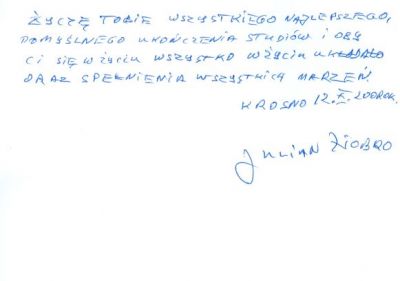 ŻYCZĘ TOBIE WSZYSTKIEGO NAJLEPSZEGO,
POMYŚLNEGO UKOŃCZENIA STUDIÓW I OBY
CI SIĘ W ŻYCIU WSZYSTKO W ŻYCIU UKŁADAŁO
ORAZ SPEŁNIENIA WSZYSTKICH MARZEŃ.
KROSNO 12.X.2000ROK.
JULIAN ZIOBRO